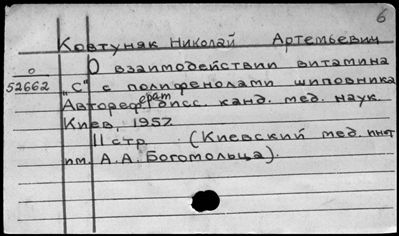 6
Ковтуняк Николай Артемьевич
О О взаимодействии витамина
52662 „С“ с полифенолами шиповника
Автореферат дисс. канд. мед. наук.
Киев, 1957
11 стр (Киевский мед. инст
им. А.А. Богомольца).